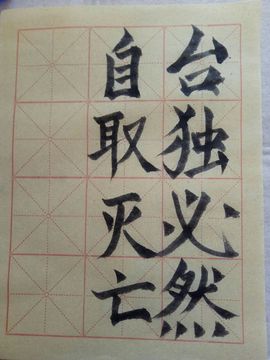 台独必然
自取灭亡